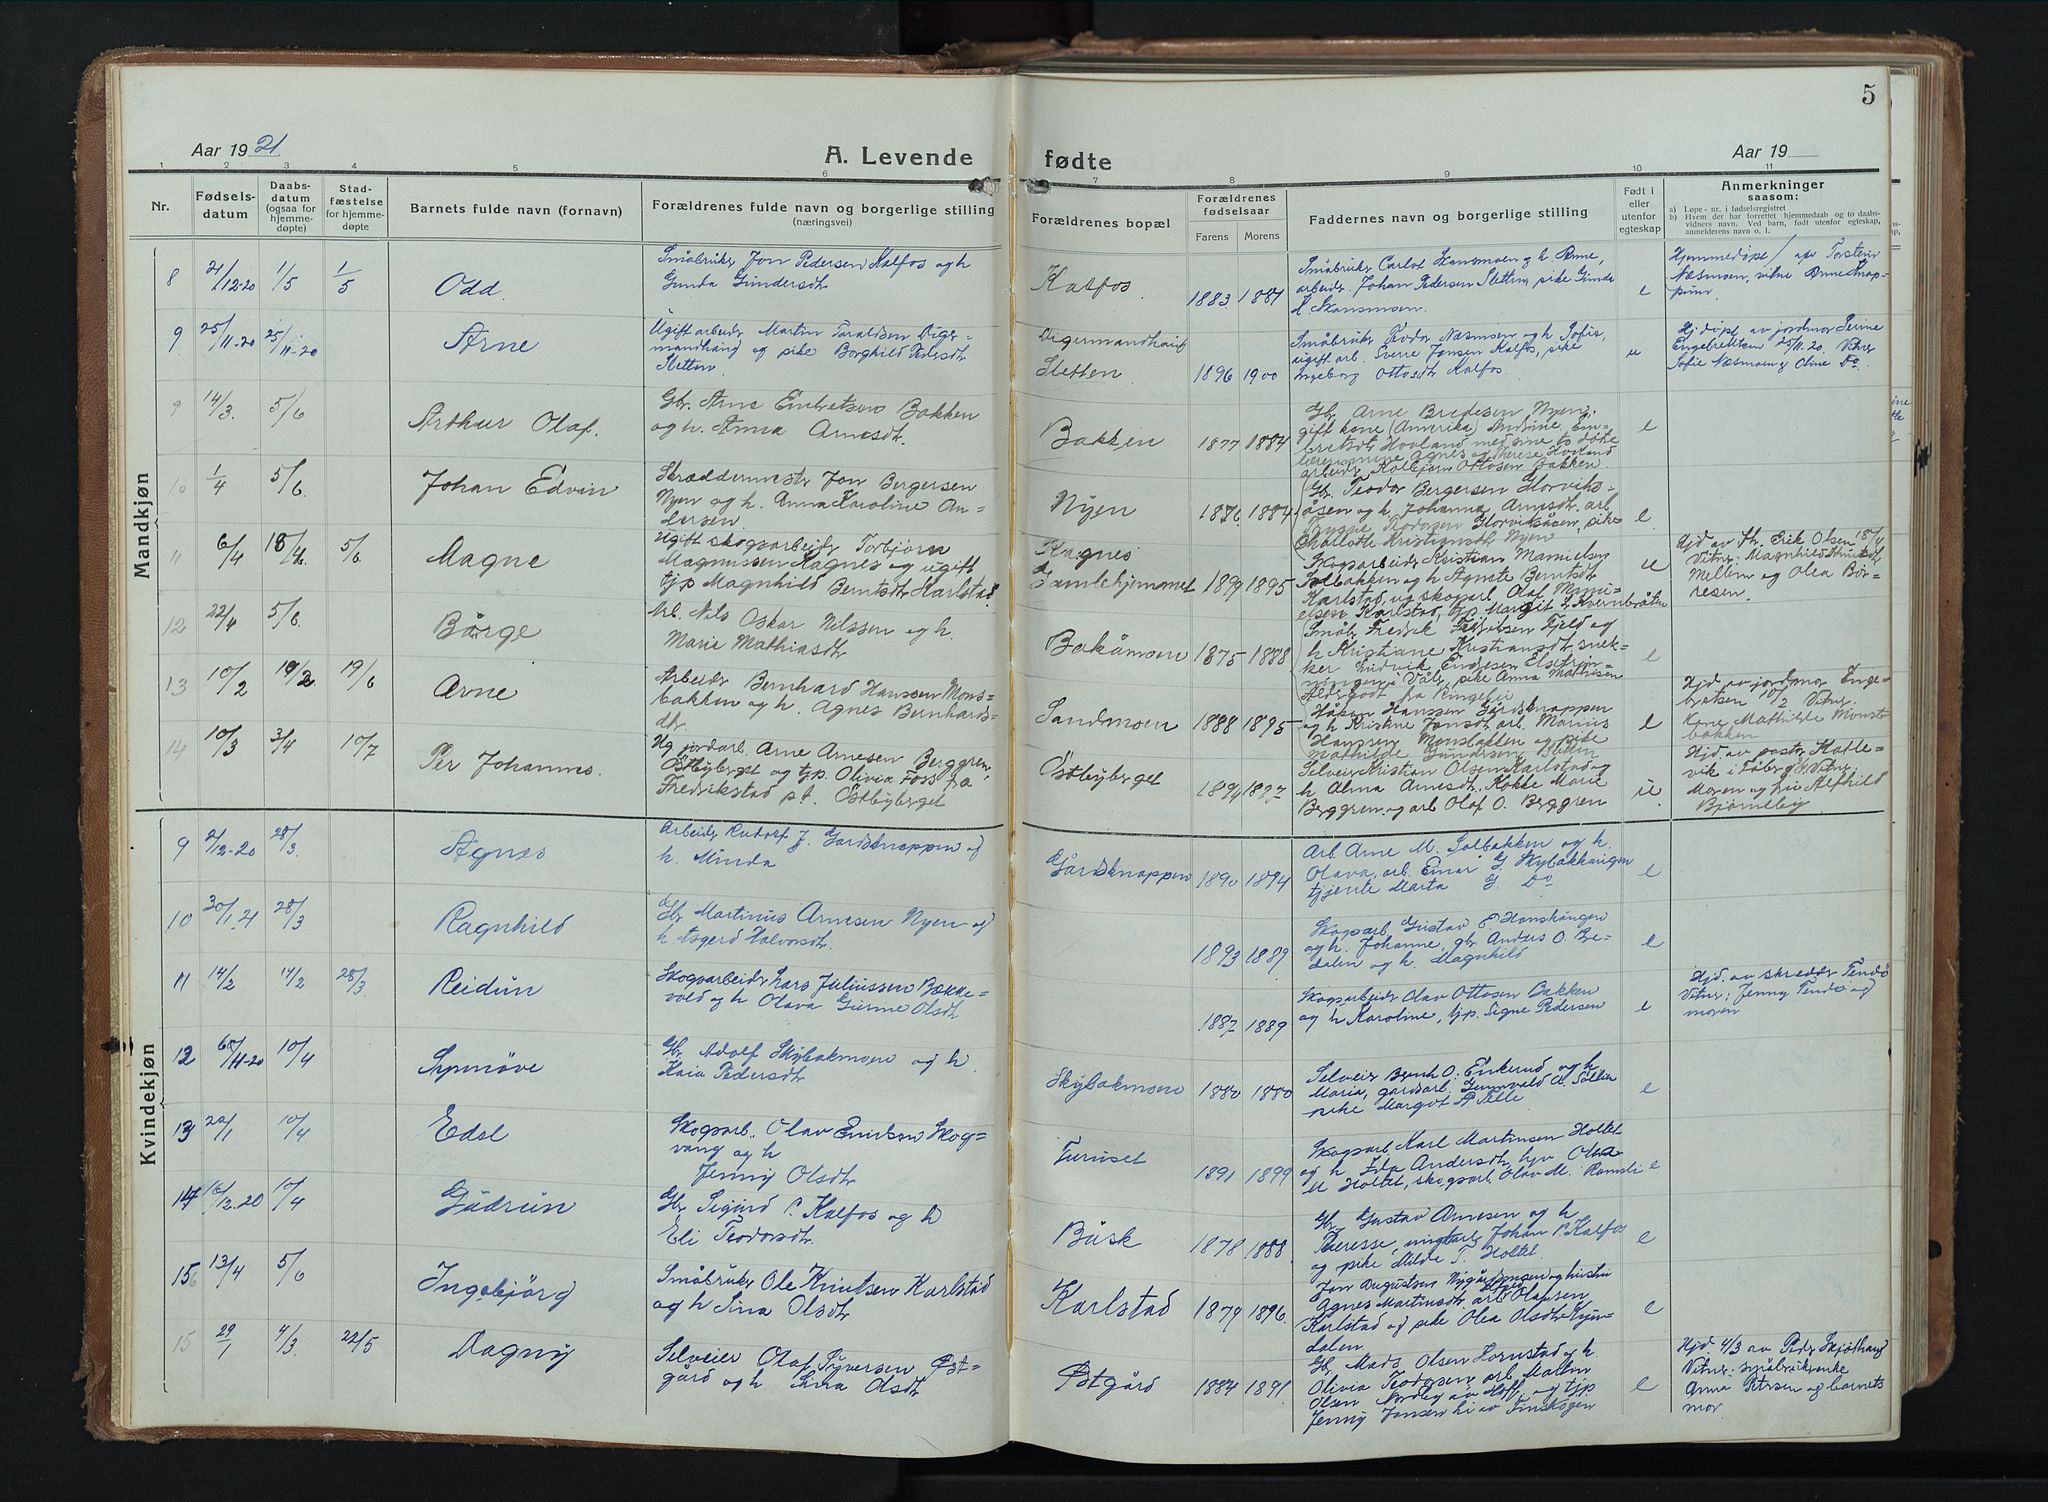 5
Aar 1921
A. Levende
fødte
Aar 19
1 2 3 4 5 6 7 8 9 10 11
Nr.
Fødsels-
datum
Daabs-
datum
(ogsaa for
hjemme-
døpte)
Stad-
fæstelse
for hjemme-
døpte
Barnets fulde navn (fornavn)
Forældrenes fulde navn og borgerlige stilling
(næringsvei)
Forældrenes bopæl
Forældrenes
fødselsaar
Farens Morens
Faddernes navn og borgerlige stilling
Født i
eller
utenfor
egteskap
Anmerkninger
saasom:
a) Løpe-nr. i fødselsregistret
b) Hvem der har forrettet hjemmedaab og to daabs-
vidners navn. Ved barn, født utenfor egteskap,
anmelderens navn o. l.
Mandkjøn
8 21/12-20 1/5 1/5 Odd.
Småbruker Jon Pedersen Kalfos og h
Gunda Gundersdtr
Kalfos 1883 1881
e
9 25/11-20 25/11-20 Arne
Ugift arbeider Martin Taraldsen Diger-
mandhaug og pike Borghild Pedersdtr
Sletten
Digermandhaug
Sletten 1896 1900
Småbruker Teodor Næsmoen og h Sofie,
ugift arb. Sverre Jansen Kalfos, pike
Ingeborg Ottosdtr Kalfos.
u
Hjdøpt av jordmor Serine
Engebretsen 25/11.20. Vitner
Sofie Næsmoen og Oline Do
9 14/3. 5/6 Arthur Olaf.
Gbr. Arne Embretsen Bakken
og h. Anna Arnesdtr.
Bakken 1877 1884
Gbr. Arne Bredesen Nyen,
gift kone (Amerika) Andrine Em-
bretsdtr Hovland med sine to døtre
lærerinnene Agnes og Therese Hovland
arbeider Kolbjørn Ottosen Bakken.
e
10 1/4 5/6 Johan Edvin
Skræddermestr Jon Bergersen
Nyen og h. Anna Karoline An-
dersen
Nyen 1876 1884
Gbr. Teodor Bergersen Glorviks-
åsen og h. Johanna Arnesdtr. arb
Trygve Teodorsen Glorviksåsen, pike
Charlotte Kristiansdtr Nyen
e.
11 6/4 18/4 5/6 Magne
Ugift skogsarbeidr Torbjørn
Magnussen Kagnes og ugift
tjp Magnhild Berntsdtr Karlstad.
Kagnes
Gamlehjemmet 1899 1895
Skogsarbeider Kristian
Solbakken og h Agnete Berntsdtr
Karlstad, ug skogarb. Olaf
Karlstad, tjp. Margit Kvernbråten
u
Hjd av Th. Erik Olsen 18/4
Vitner. Magnhild
Mellem og Olea Bør-
resen.
12 22/4 5/6 Børge
Arb. Nils Oskar Nilssen og h.
Marie Mathiasdtr
Bakåmoen 1875 1888
Småbr Fredrik Fjeld og
h Kristiane Kristiansdtr snek-
ker Ludvik Endresen
i Våler, pike Anna Mathisen
fra Ringebu
e
13 10/2 10/2. 19/6 Arne
Arbeider Bernhard Hanssen Mons-
bakken og h. Agnes Bernhards-
dtr.
Sandmoen 1888 1895
Håkon Hanssen Gårdsknappen
og h Kristine Jonsdtr arb. Marius
Hanssen Monsbakken og pike
Mathilde Gundersen Sletten
e
Hjd av jordmor Enge-
bretsen 10/2 Vitner.
Kone Mathilde Mons-
bakken
14 10/3 3/4 10/7 Per Johannes.
Ug jordarb. Arne Arnesen Berggren
Østbyberget og tjp. Olivia Foss fra
Fredrikstad p.t. Østbyberget
Østbyberget 1894 1897
Selveier Kristian Olsen Karlstad og
h Alma Arnesdtr. Kokke Marie
Berggren og arb Olaf O. Berggren
u.
Hjd av pastor
vik i Fåberg 3/4. Vitner.
Moren og frk Alfhild
Bjørneby
Kvindekjøn
9 2/12-20 28/3. Agnes
Arbeidr Rudolf J. Gardsknappen og
h. Minda
Gårdsknappen 1890 1894
Arb. Arne M. Solbakken og h.
Olava, arb. Einar G. Skybakhaugen
tjente Marta G. Do
e
10 30/1.21 28/3 Ragnhild
Gbr. Martinus Arnesen Nyen og
h Asgerd Halvorsdtr.
1893 1889
Skogsarb Gustav E Hanskaugen
og h. Johanne, gbr Anders O. Bre-
dalen og h. Magnhild
e
11 14/2 14/2 28/3 Reidun
Skogsarbeidr Lars Juliussen Bække-
vold og h Olava Gurine Olsdtr
1887 1889
Skogsarbeidr Olav Ottosen Bakken
og h Karoline, tjp. Signe Pedersen
e
Hjd. av skredder Tendø
Vitner; Jenny Tendø og
moren
12 /11-20 10/4 Synnøve
Gbr. Adolf Skybakmoen og h.
Kaia Pedersdtr
Skybakmoen 1880 1880
Selveier Bernh O. Enkerud og h
Maria, gardsarb. Gunnvald A. Sollien
pike Margot P. Telle
e
13 22/1 10/4 Edel
Skogsarb. Olav Emilsen Skog-
vang og h
Jenny Olsdtr
Furuset 1891 1899
Skogsarb Karl Martinsen Holtet
og h Ida Andersdtr, tjp Olea
M Holtet, skogsarb. Olav M.
e
14 16/12.20 10/4 Gudrun
Gbr Sigurd P. Kalfos og h
Eli Teodorsdtr.
Busk 1878 1888
Gbr. Gustav Arnesen og h
Terese, ungkarl Johan P. Kalfos
og pike Milde T. Holtet.
e
15 13/4 5/6 Ingebjörg
Småbruker Ole Knutsen Karlstad
og h Sina Olsdtr
Karlstad 1879 1896.
Jon Augustsen og hustru
Agnes Martinsdtr. arb Olafsen
Karlstad og pike Olea Olsdtr Kjern-
dalen
e
15 29/1 4/3. 22/5 Dagny
Selveier Olaf Syversen Øst-
gård og h Sina Olsdtr
Østgård 1884 1891
Gbr. Mads Olsen Hornstad og h.
Olivia Teodorsen, arb. Martin
Olsen Nordby av Hoff og tjp
Jenny Jansen hi av Finskogen
e
Hjd. 4/3 av Peder Skjøthaug
Vitner: småbrukerenke
Anna Petersen og barnets
mor.